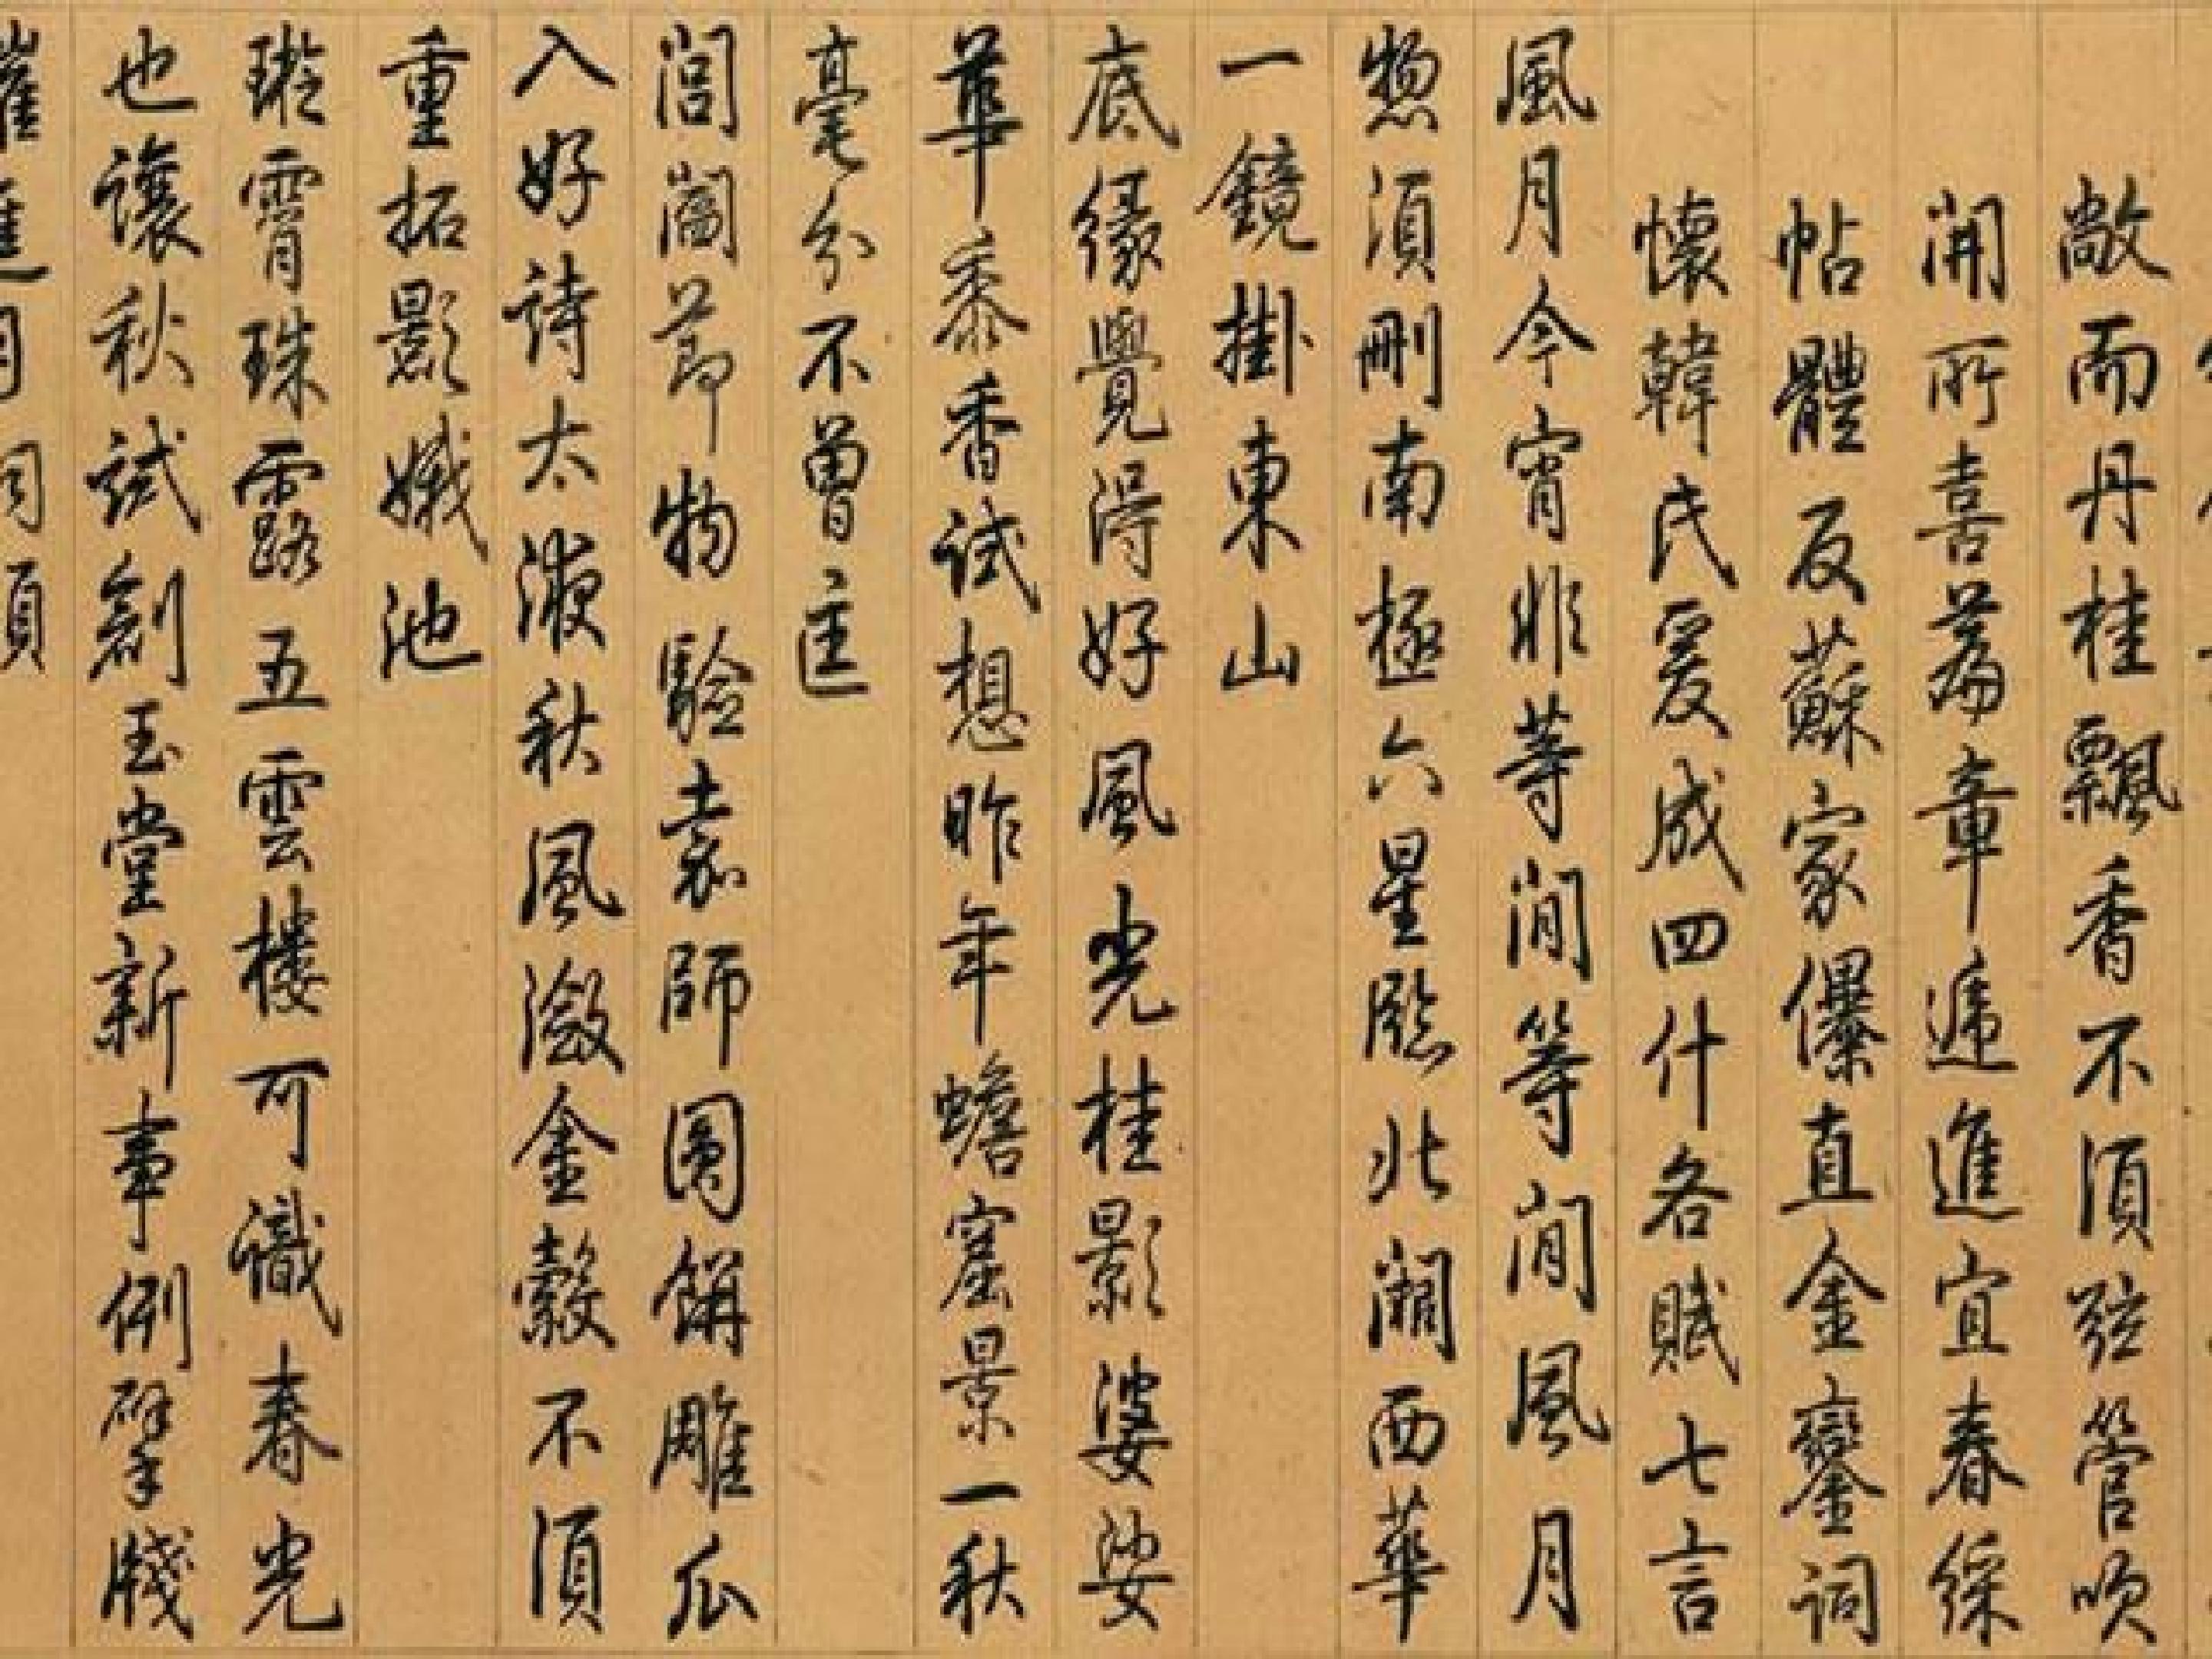 敞而丹桂飄香不須弦管頌
開所喜蒭章遞進宜春綵
帖體反蘇家儤直金鑾詞
懷韓氏爰成四什各賦七言
風月今宵非等閒等閒風月
總須刪南極六星臨北闕西華
一鏡掛東山
底緣覺得好風光桂影婆娑
華黍香試想昨年蟾窟景一秋
毫分不曾
閶闔節物驗京師圓餅雕瓜
入好詩太液秋風瀲金縠不須
重拓影娥池
璇霄珠露五雲樓可識春光
也讓秋試創玉堂新事例擘牋